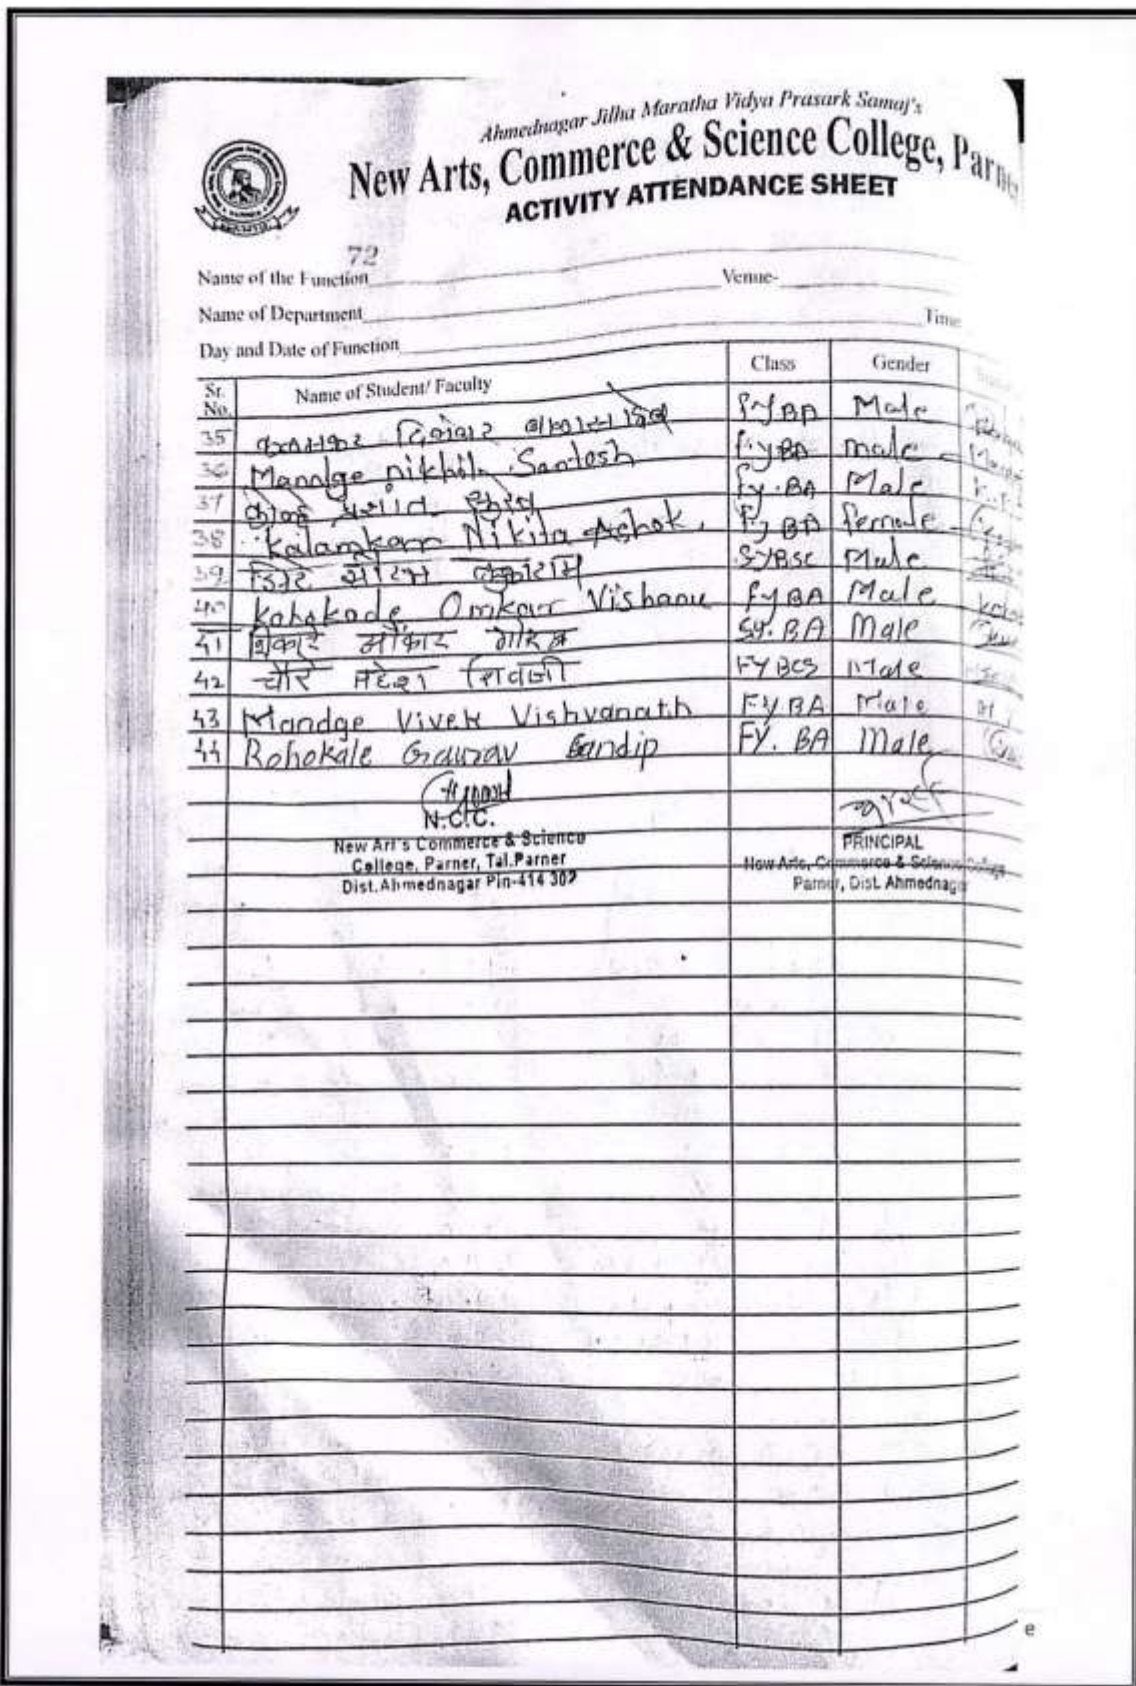 Ahmednagar Jilha Maratha Vidya Prasark Samaj's
New Arts, Commerce & Science College, Parne
ACTIVITY ATTENDANCE SHEET
72
Name of the Function Venue-
Name of Department
Day and Date of Function Time
Sr. No. Name of Student/ Faculty Class Gender
35 FYBA Male
36 Mandge nikhil Santosh F.yBA male
37 Fy.BA Male
38 Kalamkar Nikita Ashok. Fy BA female
39 तुकाराम SYBSC Male
40 Omkar FyBA Male
41 शिकारे ओंकार SY.BA Male
42 चौरे महेश शिवाजी FYBCS Male
43 Mandge Vivek Vishvanath FYBA Male
44 Rohokale Gaurav Sandip FY. BA Male
N.C.C.
New Art's Commerce & Science
College, Parner, Tal.Parner
Dist.Ahmednagar Pin-414 302
PRINCIPAL
New Arts, Commerce & Science College
Parner, Dist. Ahmednagar
e